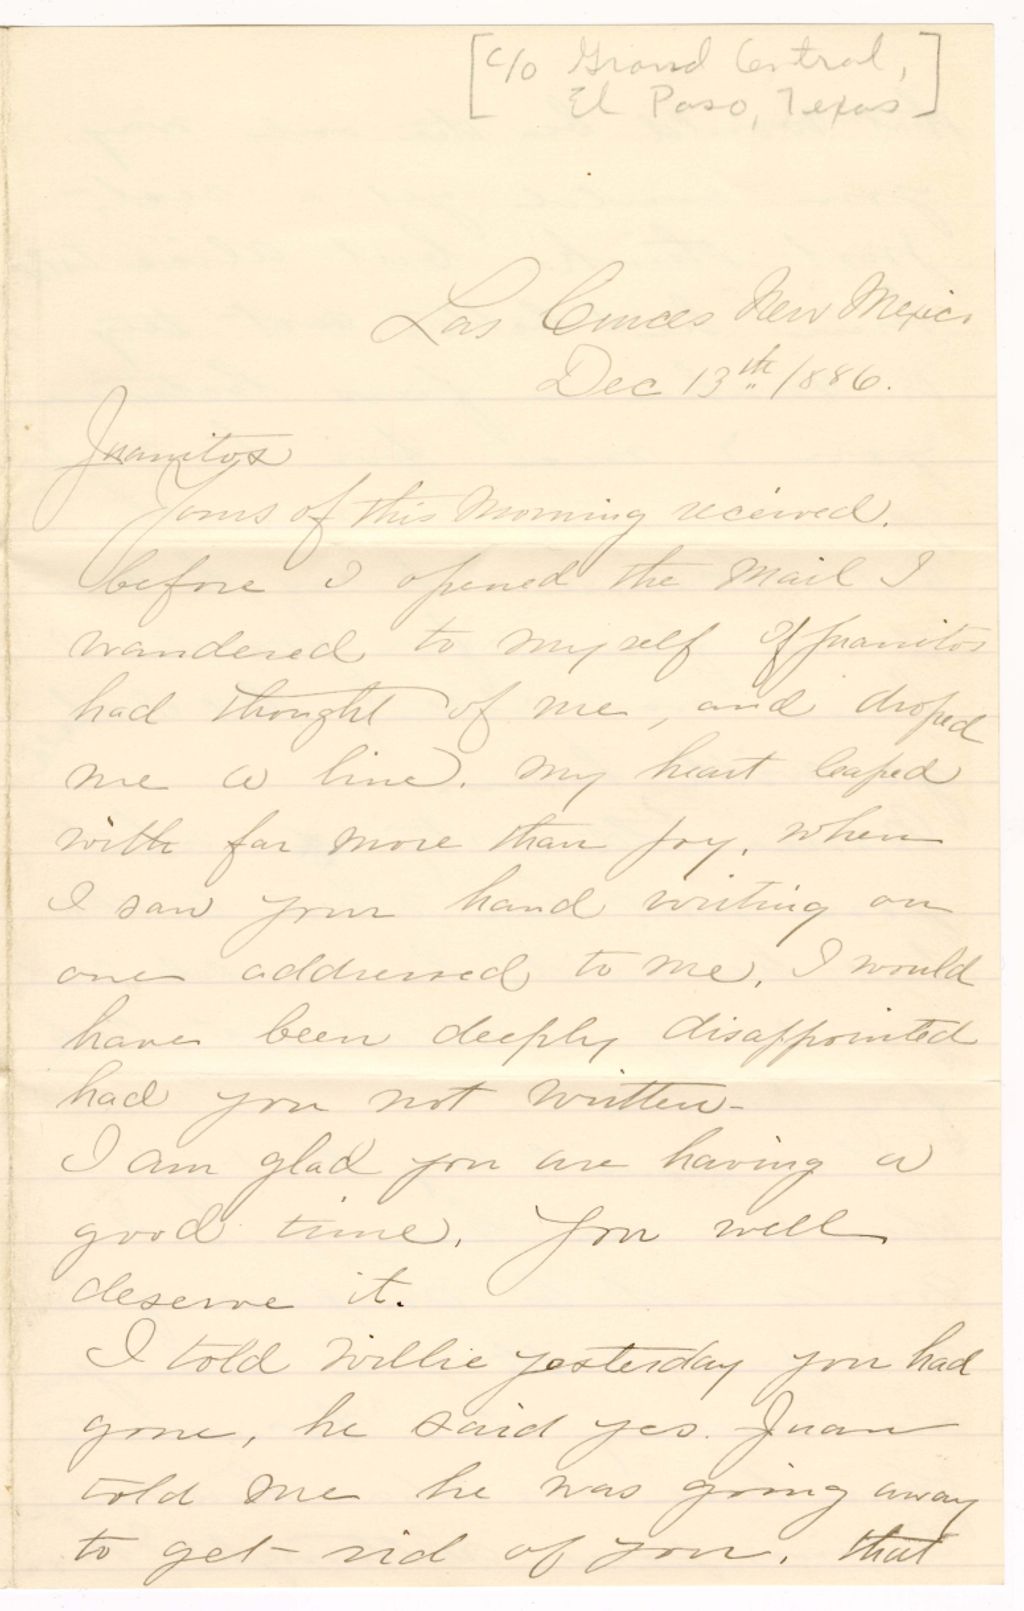 [c/o Grand Central,
El Paso, Texas]
Las Cruces New Mexico
Dec 13th /886.
Juanitos
Yours of this morning received.
before I opened the mail I
wandered to myself if Juanitos
had thought of me, and droped
me a line. My heart leaped
with far more than joy, when
I saw your hand writing on
one addressed to me. I would
have been deeply disappointed
had you not written-
I am glad you are having a
good time. You well
deserve it.
I told Willie yesterday you had
gone, he said yes. Juan
told me he was going away
to get rid of you. that